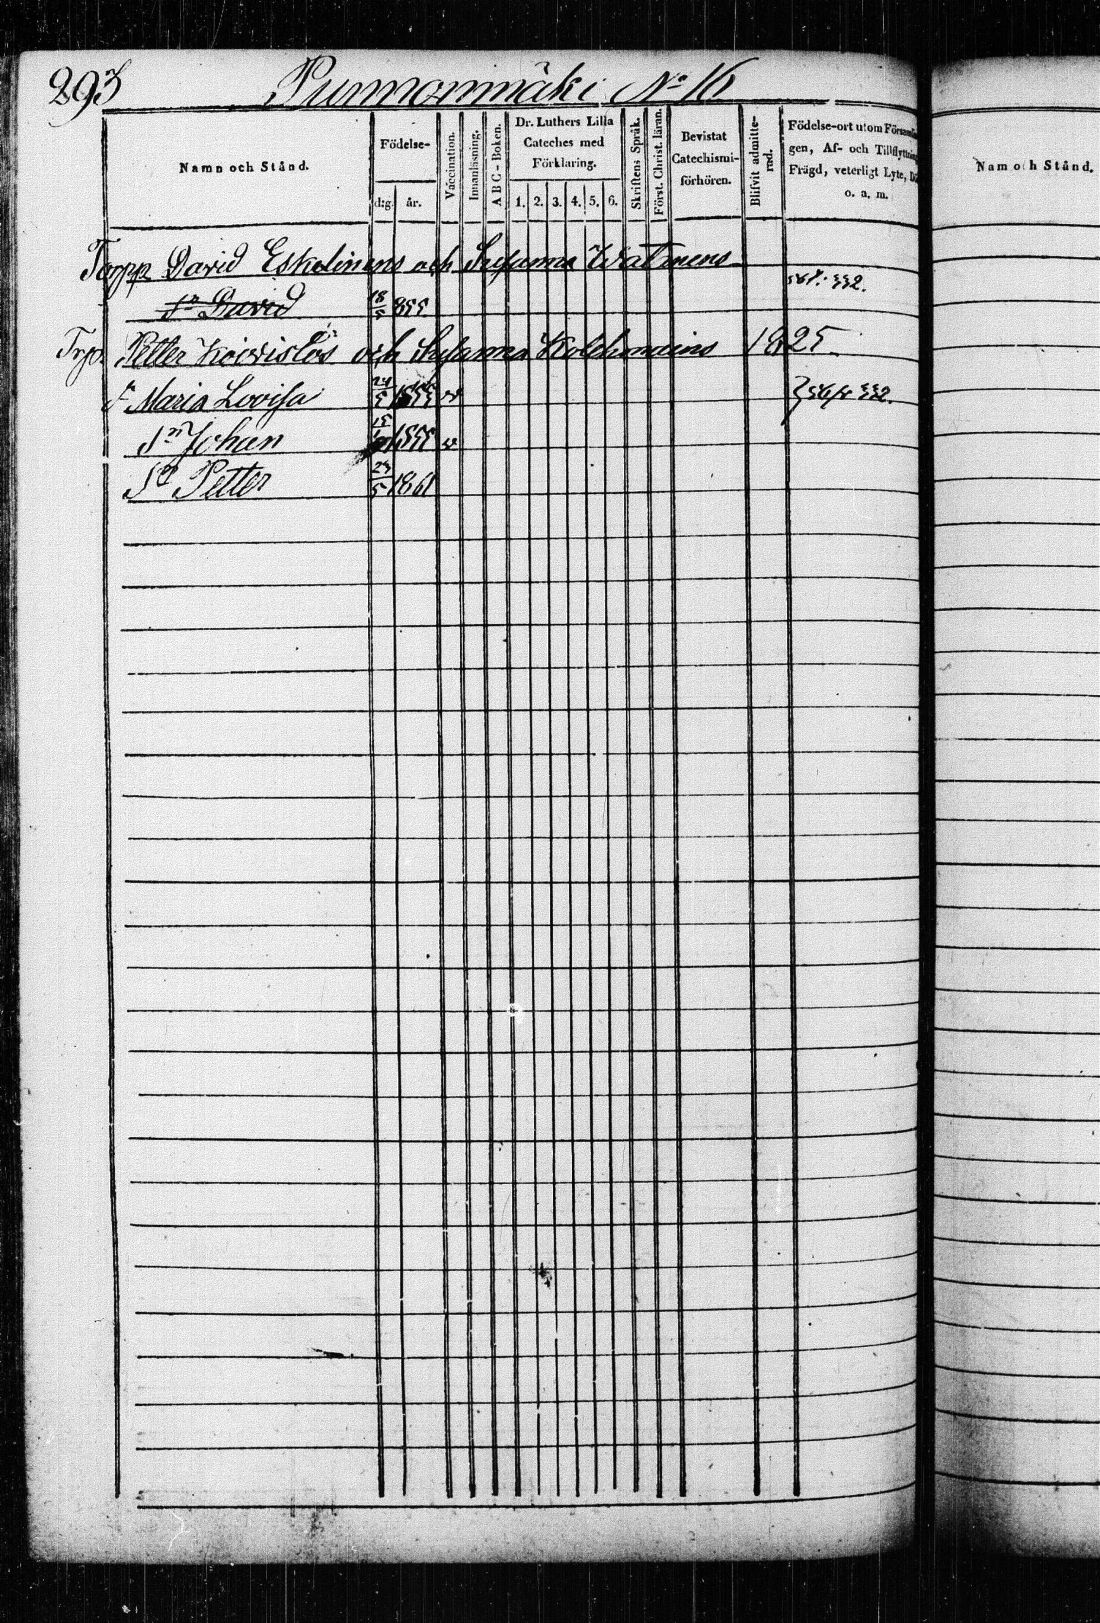 293 Purmonmäki No 16
Namn och Stånd.
Födelse-
d:g. år.
Vaccination.
Innanläsning.
A B C - Boken.
Dr. Luthers Lilla
Cateches med
Förklaring.
1. 2. 3. 4. 5. 6.
Skriftens Språk.
Först. Christ. läran.
Bevistat
Catechismi-
förhören.
Blifvit admitte-
rad.
Födelse-ort utom Församlin
gen, Af- och Tillflyttning
Frägd, veterligt Lyte,
o. a. m.
Namn och Stånd.
Torpp. David Eskelinens och Susanna Watanens
Sn David 18/5 855
Trp. Petter Koivistos och Susanna Kolehmains 1825
F Maria Lovisa 24/5 1855 v
Sn Johan 1855 v
Sn Petter 23/5 1861